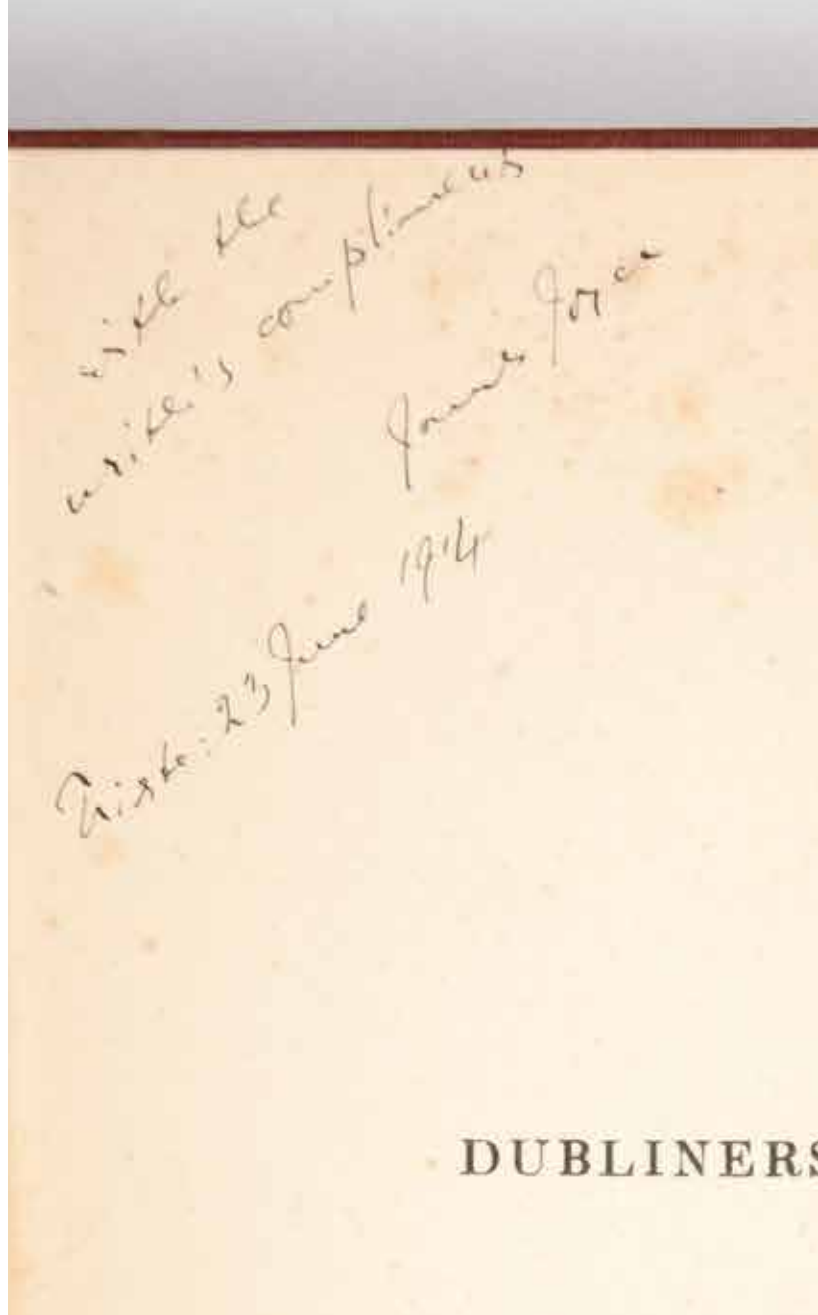 with the
writer's compliments
James Joyce
Trieste: 23 June 1914
DUBLINERS